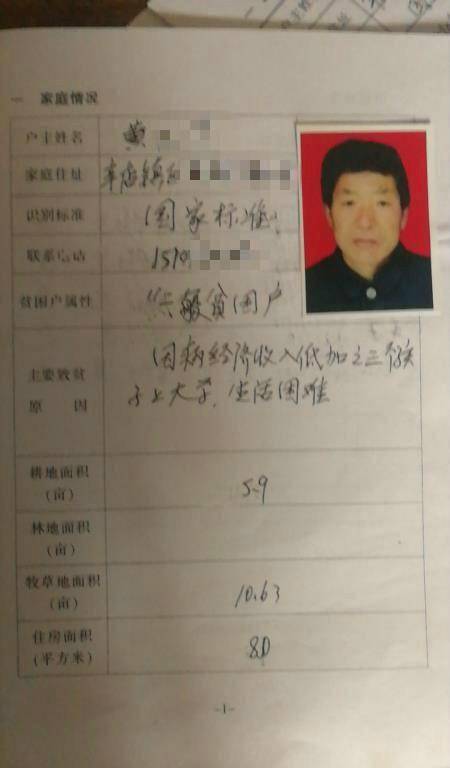 一 家庭情况
户主姓名 黄
家庭住址 车店镇
识别标准 国家标准
联系电话 151
贫困户属性 一般贫困户
主要致贫 因病经济收入低加之三个孩
原 因 子上大学,生活困难
耕地面积
(亩) 5.9
林地面积
(亩)
牧草地面积
(亩) 10.63
住房面积
(平方米) 80
-1-